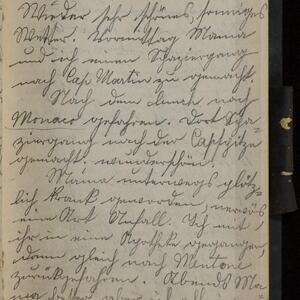 Wieder sehr schönes, sonniges
Wetter. Vormittag Mama
und ich einen Spaziergang
nach Cap Martin zu gemacht.
Nach dem Lunch nach
Monaco gefahren. Dort Spa-
ziergang nach der Capspitze
gemacht. wunderschön.
Mama unterwegs plötz-
lich krank geworden, nervös
eine Art Anfall. Ich mit
ihr in eine Apotheke gegangen,
dann gleich nach Mentone
zurückgefahren. Abends Ma-